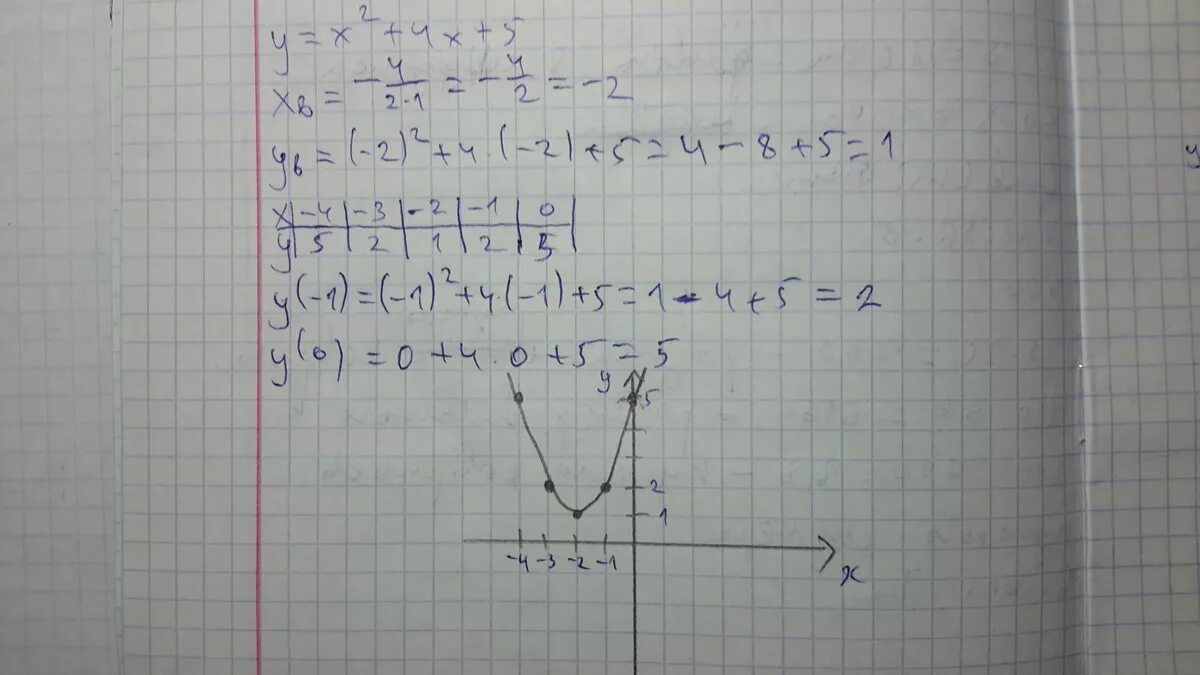 y = x² + 4x + 5
xв = -4/(2·1) = -4/2 = -2
yв = (-2)² + 4·(-2) + 5 = 4 - 8 + 5 = 1
x | -4 | -3 | -2 | -1 | 0 |
y | 5 | 2 | 1 | 2 | 5 |
y(-1) = (-1)² + 4·(-1) + 5 = 1 - 4 + 5 = 2
y(0) = 0 + 4·0 + 5 = 5
y
5
2
1
-4 -3 -2 -1
x
y